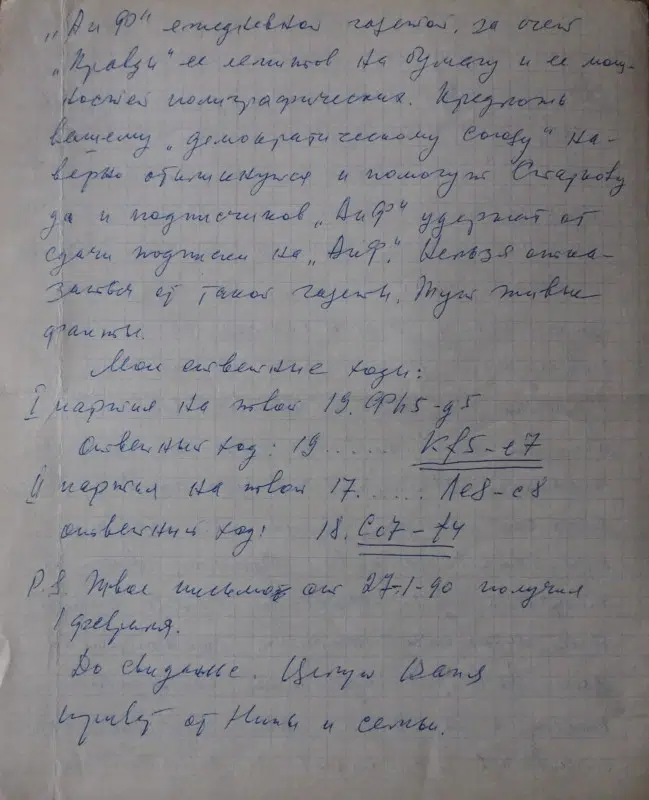 „АиФ" ежедневной газетой, за счет
„Правды" ее лимитов на бумагу и ее мощ-
ностей полиграфических. Предложь
вашему „демократическому союзу" на-
верно откликнутся и помогут Старкову
да и подписчиков „АиФ" удержат от
сдачи подписки на „АиФ". Нельзя отка-
заться от такой газеты. Тут живые
факты.
Мои ответные ходы:
I партия на твой 19. Фh5-g5
ответный ход: 19...... Кf5-e7
II партия на твой 17...... Ле8-с8
ответный ход: 18. Сс7-f4
P.S. Твое письмо от 27-1-90 получил
1 февраля.
До свиданье. Целую Ваня
привет от Нины и семьи.